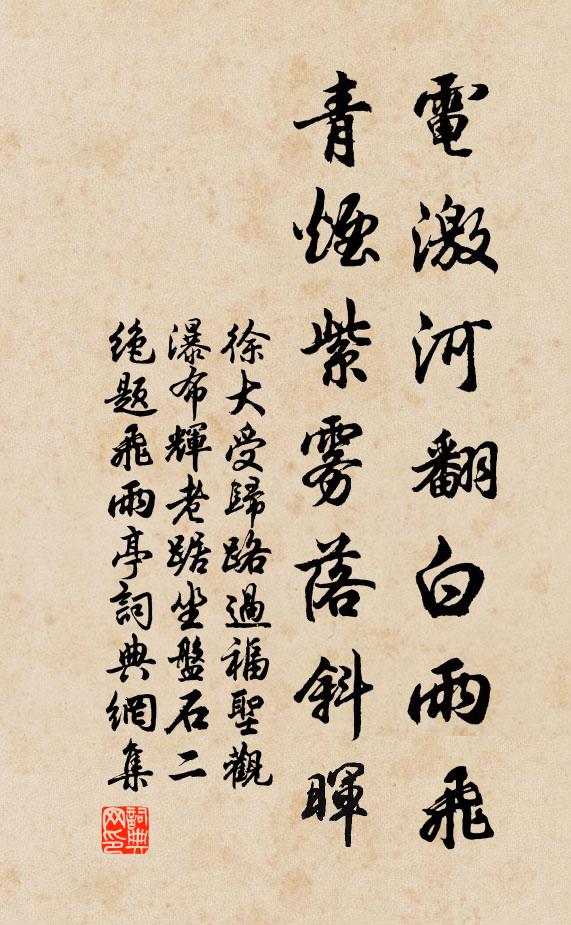 電激河翻白雨飛
青煙紫雾落斜暉
徐大受歸路過福聖觀
瀑布輝老踞坐盤石二
绝题飛雨亭詞典網集
詞典网印